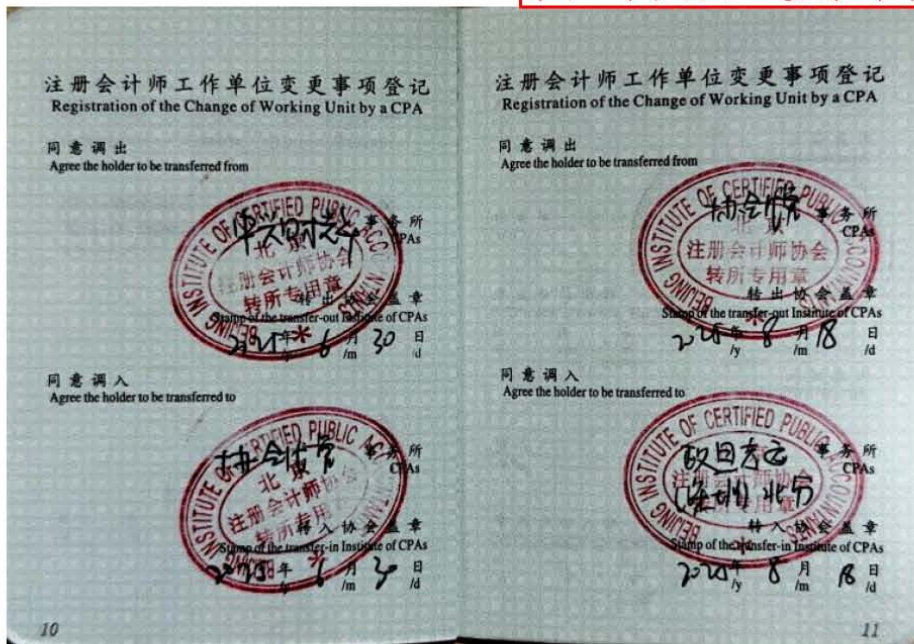 注册会计师工作单位变更事项登记
Registration of the Change of Working Unit by a CPA
同意调出
Agree the holder to be transferred from
事务所
CPAs
BEIJING INSTITUTE OF CERTIFIED PUBLIC ACCOUNTANTS
北京
注册会计师协会
转所专用章
转出协会盖章
Stamp of the transfer-out Institute of CPAs
年 6 月 30 日
/y /m /d
同意调入
Agree the holder to be transferred to
协会代管 事务所
CPAs
BEIJING INSTITUTE OF CERTIFIED PUBLIC ACCOUNTANTS
北京
注册会计师协会
转所专用
转入协会盖章
Stamp of the transfer-in Institute of CPAs
2025 年 6 月 30 日
/y /m /d
10
注册会计师工作单位变更事项登记
Registration of the Change of Working Unit by a CPA
同意调出
Agree the holder to be transferred from
协会代管 事务所
CPAs
BEIJING INSTITUTE OF CERTIFIED PUBLIC ACCOUNTANTS
北京
注册会计师协会
转所专用章
转出协会盖章
Stamp of the transfer-out Institute of CPAs
2025 年 8 月 18 日
/y /m /d
同意调入
Agree the holder to be transferred to
事务所
CPAs
(深圳) 北分
BEIJING INSTITUTE OF CERTIFIED PUBLIC ACCOUNTANTS
注册会计师协会
转所专用章
转入协会盖章
Stamp of the transfer-in Institute of CPAs
2025 年 8 月 18 日
/y /m /d
11